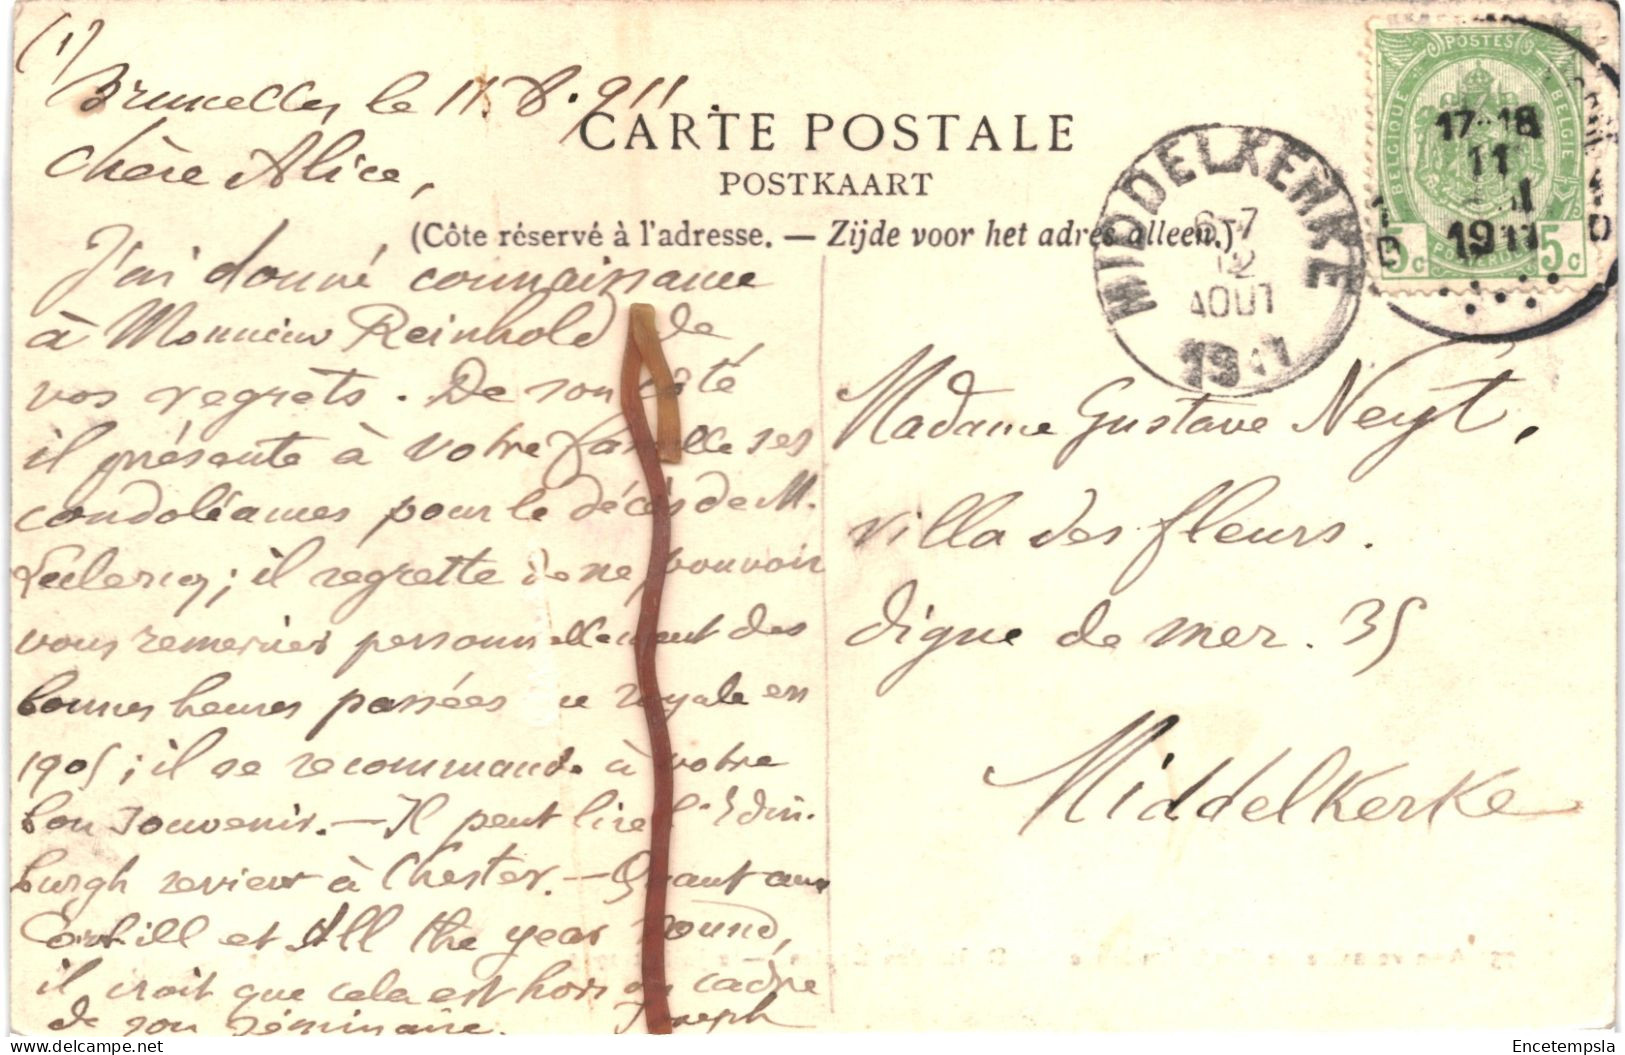 (1)
Bruxelles le 11.8.911
Chère Alice,
J'ai donné connaissance
à Monsieur Reinhold de
vos regrets. De son côté
il présente à votre famille ses
condoléances pour le décès de M.
Leclercq; il regrette de ne pouvoir
vous remercier personnellement des
bonnes heures passées rue royale en
1905; il se recommande à votre
bon souvenir. — Il peut lire l'Edin-
burgh review à Chester. — Quant aux
Cornhill et All the year round,
il croit que cela est hors du cadre
de son séminaire. Joseph
CARTE POSTALE
POSTKAART
(Côte réservé à l'adresse. — Zijde voor het adres alleen.)
MIDDELKERKE
6-7
12
AOUT
1911
POSTES
BELGIQUE
BELGIE
5c
5c
17-18
11
1911
Madame Gustave Neyt.
villa des fleurs.
digue de mer. 35
Middelkerke
Encetempsla
www.delcampe.net